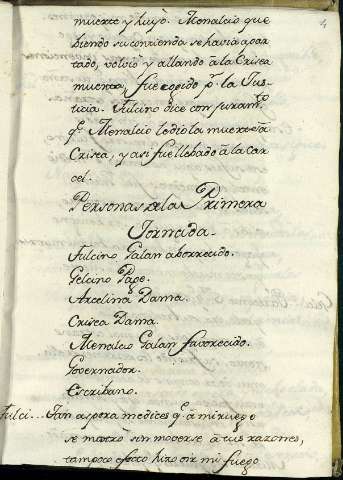 4
muerte y huyò. Menalcio que
biendo su contienda se havia apar
tado, volvio y allando à la Crisea
muerta, fue cogido pr. la Jus-
ticia. Fulcino dice con juramto.
qe. Menalcio le dio la muerte à
Crisea, y asi fue llebado à la Car
cel.
Personas de la Primera
Jornada.
Fulcino Galan aborrecido.
Gelcino Page.
Arcelina Dama.
Crisea Dama.
Menalcio Galan favorecido.
Governador.
Escribano.
Fulci... Tan aspera me dices qe. à mi ruego
se mostrò sin moverse à tus razones,
tampoco efecto hizo mi fuego